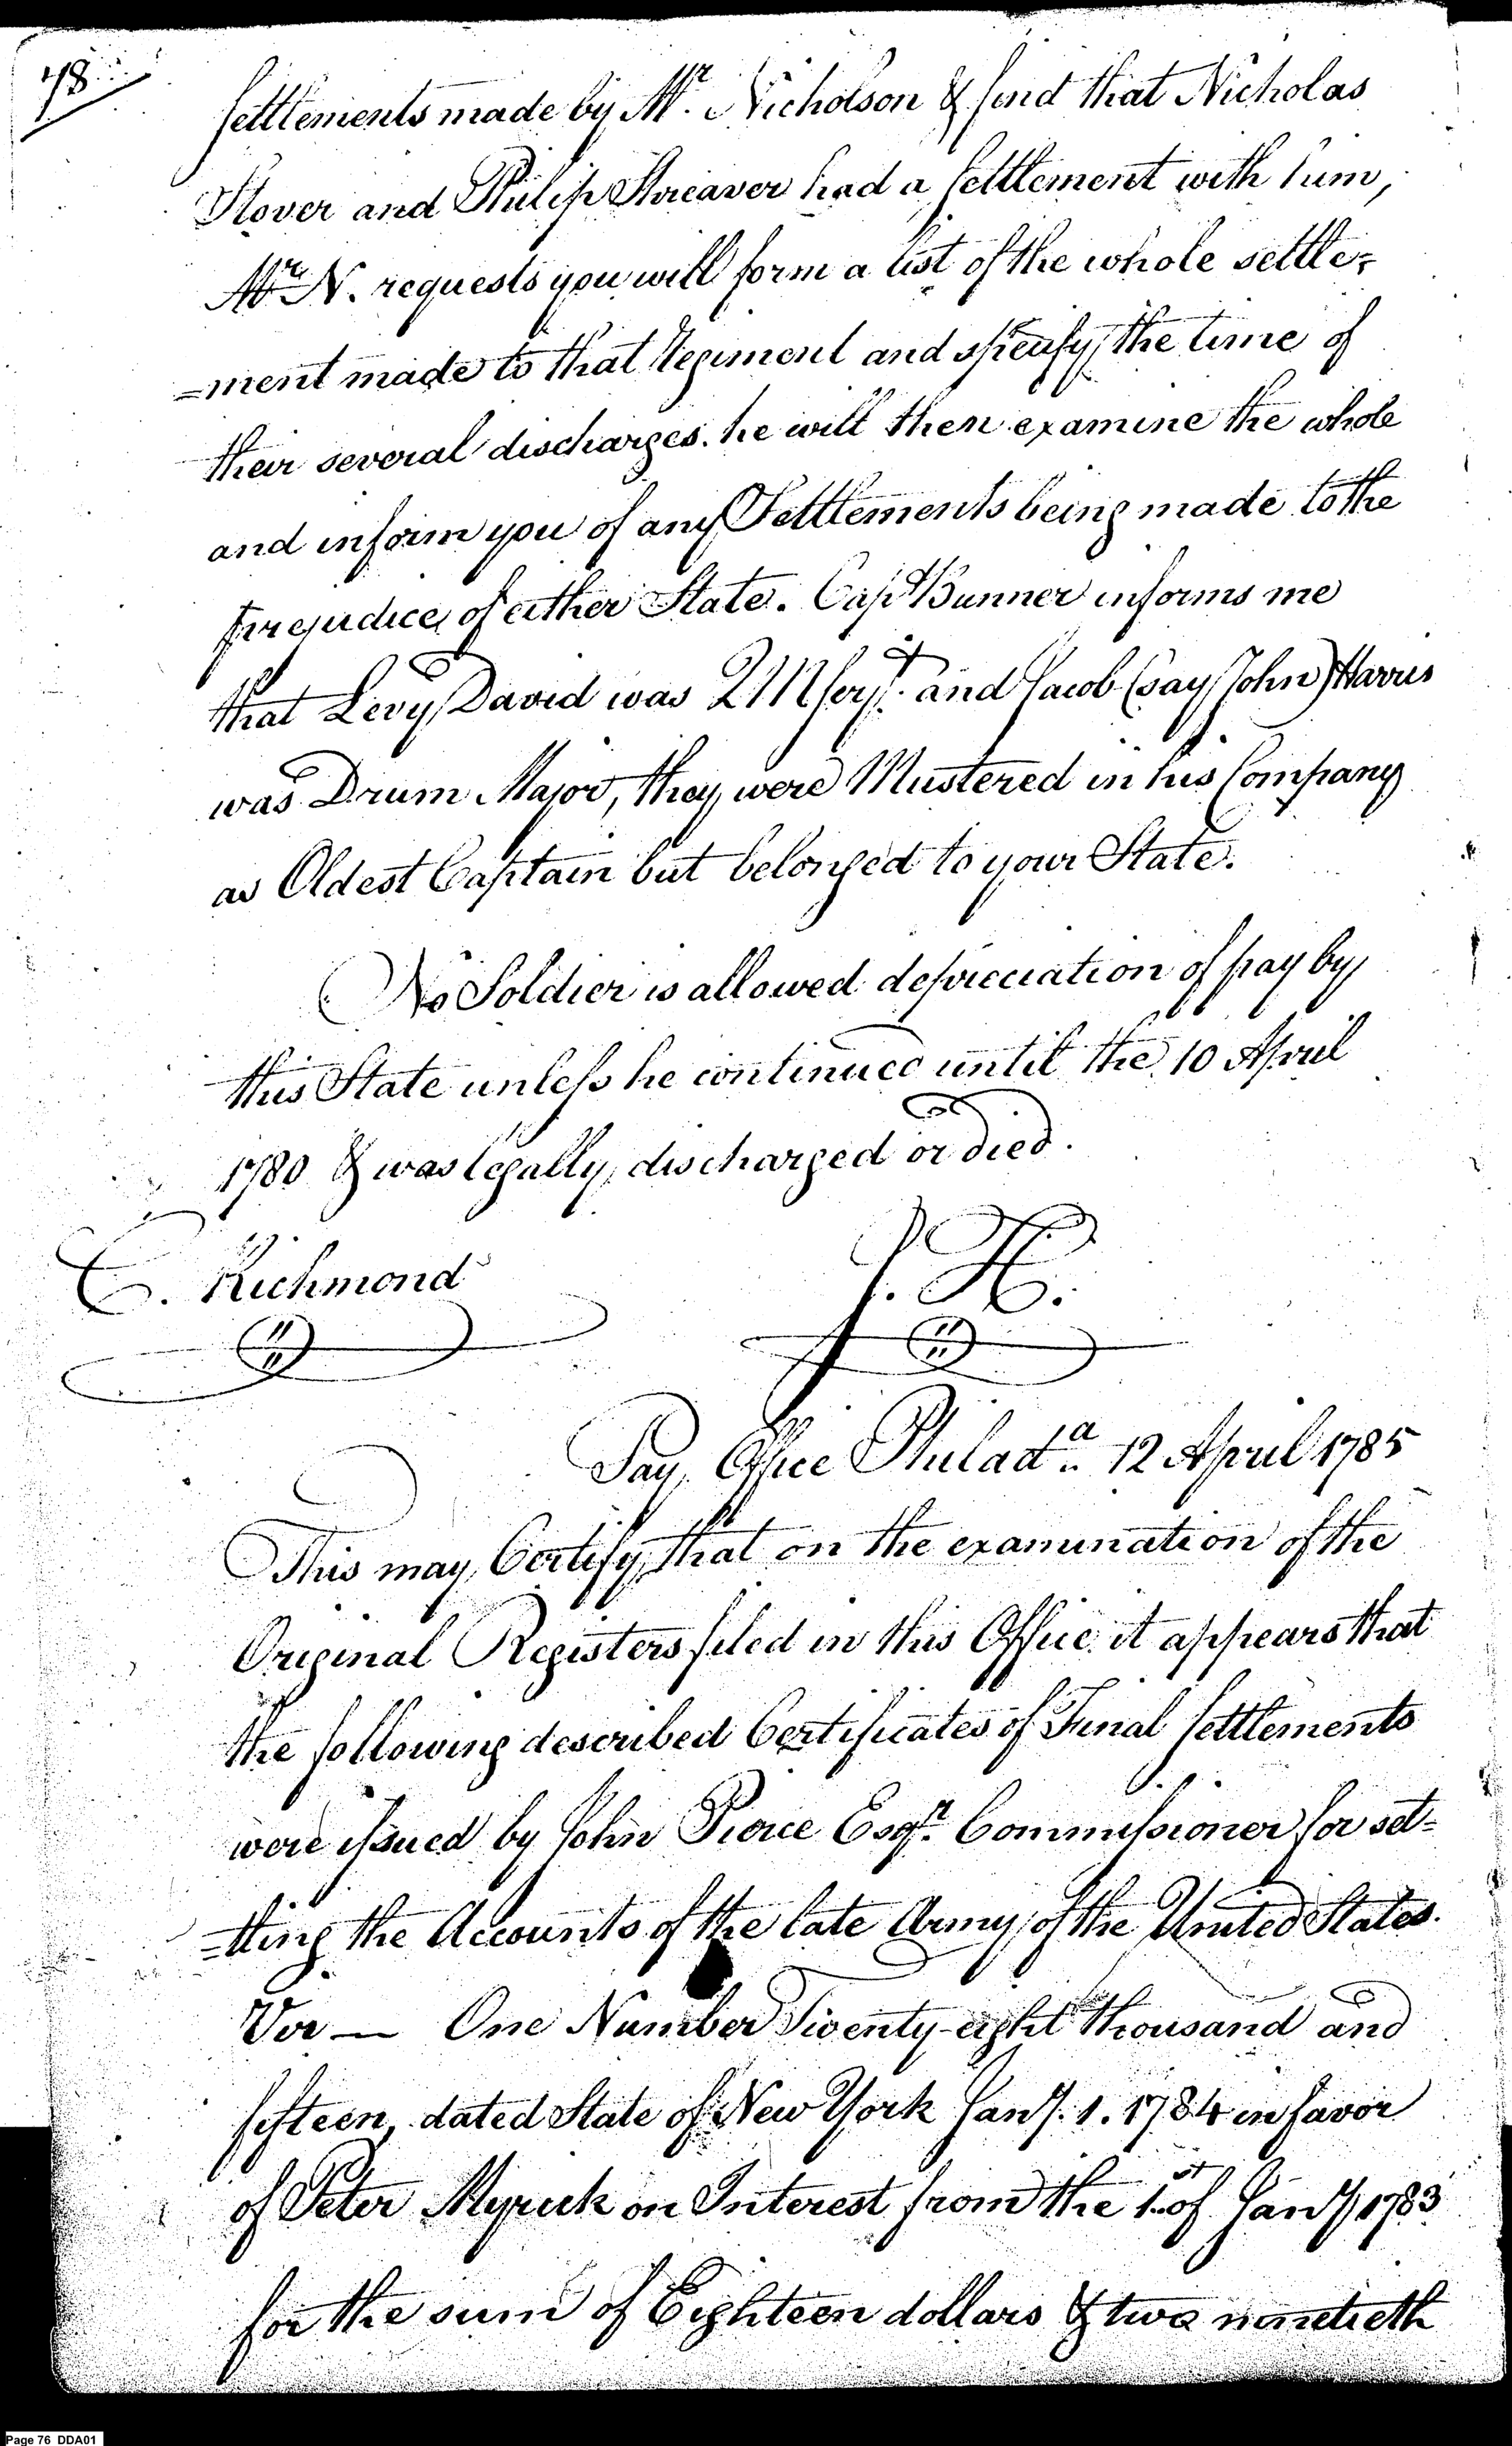 78
settlements made by Mr. Nicholson & find that Nicholas
Stover and Philip Shreaver had a settlement with him,
Mr. N. requests you will form a list of the whole settle=
=ment made to that Regiment and specify the time of
their several discharges. he will then examine the whole
and inform you of any Settlements being made to the
prejudice of either State. Capt Bunner informs me
that Levy David was QM Serjt. and Jacob (say John) Harris
was Drum Major, they were Mustered in his Company
as Oldest Captain but belonged to your State.
No Soldier is allowed depreciation of pay by
this State unless he continued until the 10 April
1780 & was legally discharged or died.
C. Richmond
J. H.
Pay Office Philada. 12 April 1785
This may Certify, that on the examination of the
Original Registers filed in this Office it appears that
the following described Certificates of Final Settlements
were issued by John Pierce Esqr. Commissioner for set=
=tling the Accounts of the late Army of the United States.
Viz — One Number Twenty-eight thousand and
fifteen, dated State of New York Jany. 1. 1784 in favor
of Peter Myrick on Interest from the 1st of Jany 1783
for the sum of Eighteen dollars & two ninetieth
Page 76 DDA01